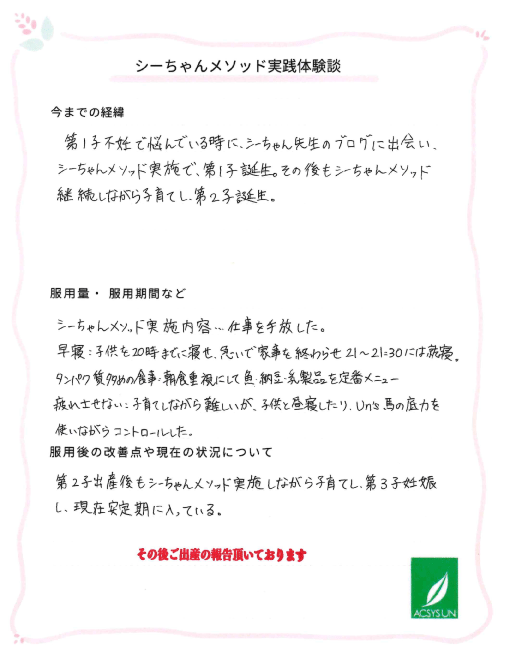 シーちゃんメソッド実践体験談
今までの経緯
第1子不妊で悩んでいる時に、シーちゃん先生のブログに出会い、
シーちゃんメソッド実施で、第1子誕生。その後もシーちゃんメソッド
継続しながら子育てし、第2子誕生。
服用量・服用期間など
シーちゃんメソッド実施内容…仕事を手放した。
早寝：子供を20時までに寝せ、急いで家事を終わらせ21～21:30には就寝。
タンパク質多めの食事：朝食重視にして魚・納豆・乳製品を定番メニュー
疲れさせない：子育てしながら難しいが、子供と昼寝したり、Un's馬の底力を
使いながらコントロールした。
服用後の改善点や現在の状況について
第2子出産後もシーちゃんメソッド実施しながら子育てし、第3子妊娠
し、現在安定期に入っている。
その後ご出産の報告頂いております
ACSYSUN